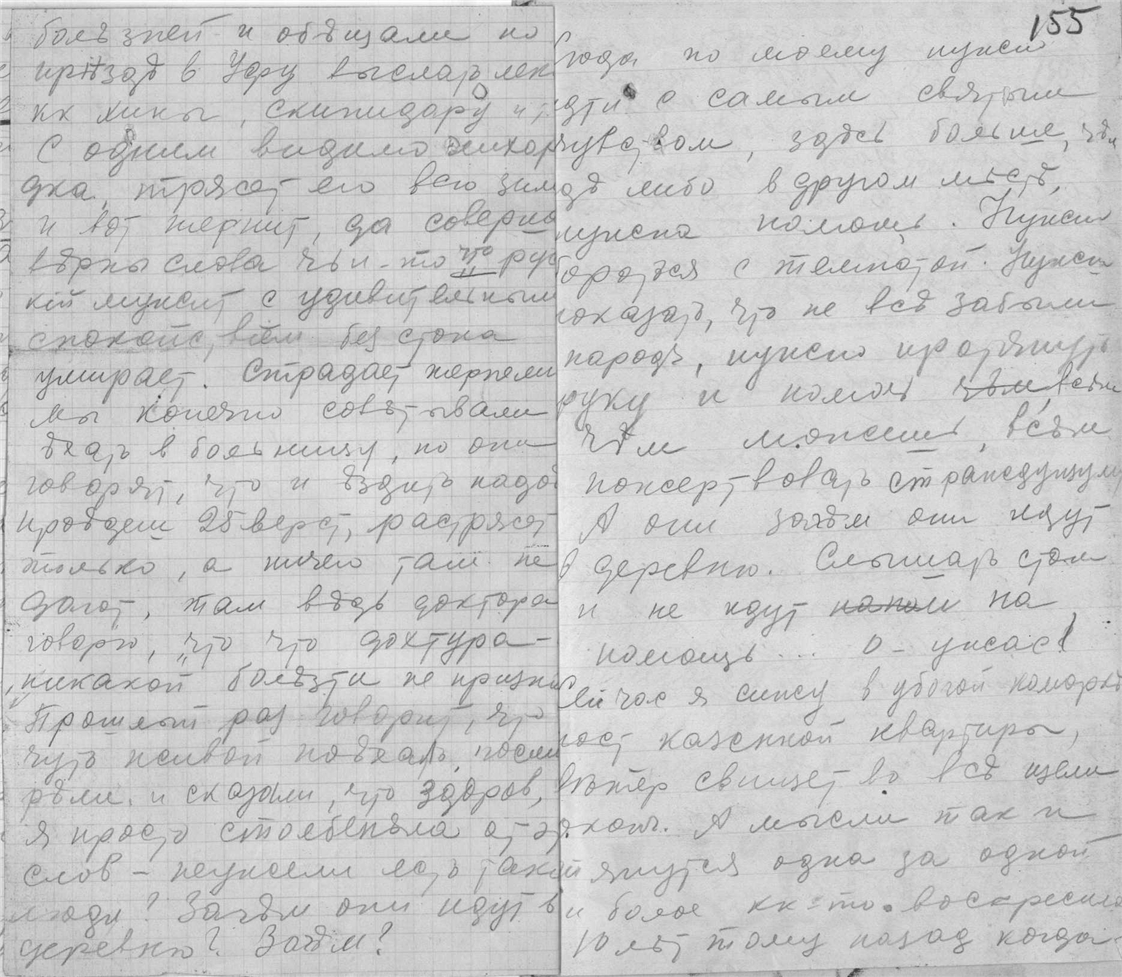 болѣзней и обѣщали по
приѣздѣ в Уфу выслать лек
кк хины, скипидару и
С одним видимо лихора
дка, трясет его всю зиму
и вот терпит, да соверше
вѣрны слова чьи-то что рус
кій мужик с удивительным
спокойствіем без стона
умирает. Страдает терпели
мы конечно совѣтывали
ѣхать в больницу, но они
говорят, что и ѣздить надо
проѣдеш 25 верст, растрясет
только, а ничего там не
дают, там вѣдь доктора
говорю, "что что дохтура-
никакой болѣзти не призна
Прошлый раз говорит, что
чуть живой поѣхал, посмо
рѣли и сказали, что здоров,
я просто столбенѣла от э
слов – неужели есть такі
люди? Зачѣм они идут в
деревню? Зачѣм?
155
года по моему нужно
идти с самым святым
чувством, здѣсь больше, чѣм
гдѣ либо в другом мѣстѣ,
нужна помощь. Нужно
бороться с темнотой. Нужно
показать, что не всѣ забыли
народ, нужно протянуть
руку и помочь чѣм, всѣм
чѣм можешь, всѣм
пожертвовать страждущему
А они зачѣм они идут
в деревню. Слышать стон
и не идут на
помощь... о – ужас!
Сейчас я сижу в убогой коморкѣ
казенной квартиры,
вѣтер свищет во всѣ щели
окон. А мысли так и
тянутся одна за одной
и болѣе кк-то воскресило
10 лѣт тому назад когда-